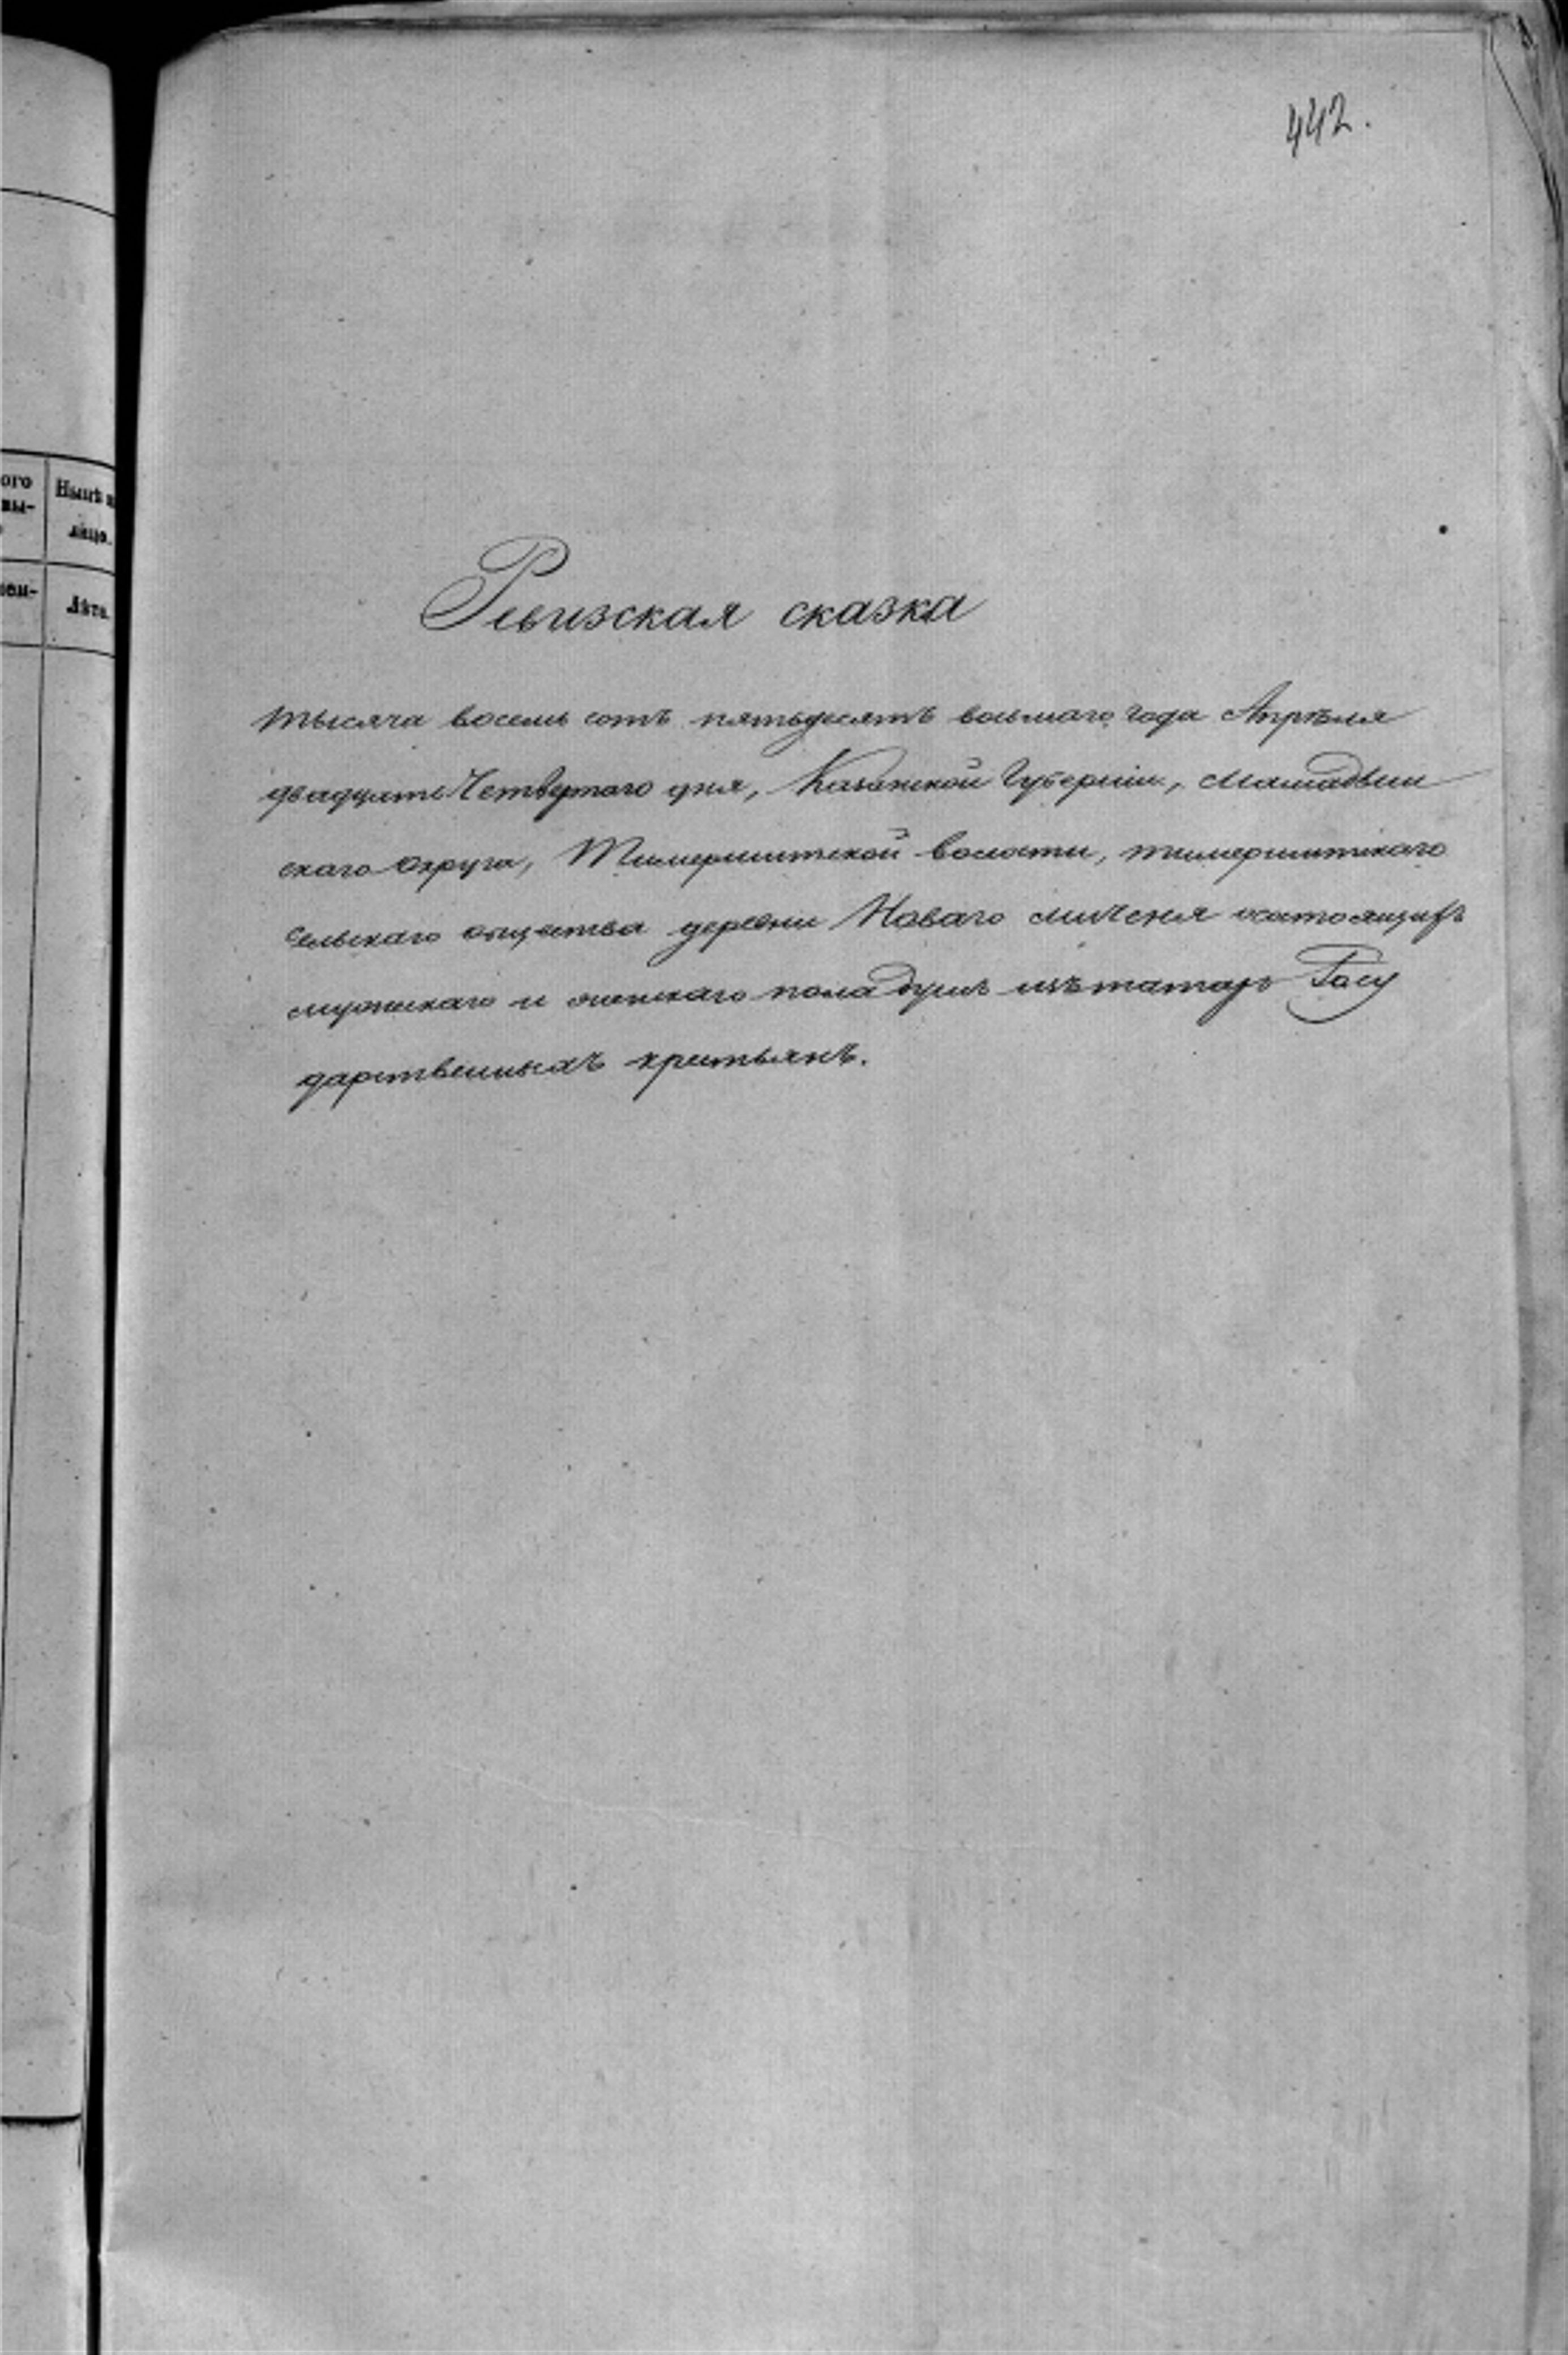 442.
ого
вы-
Нынѣ
лицо.
мен-
Лѣта.
Ревизская сказка
тысяча восемь сотъ пятьдесятъ восьмаго года Апрѣля
двадцать Четвертаго дня, Казанской Губерніи, Мамадыш
скаго Округа, Тимершитской волости, тимершитскаго
сельскаго общества деревни Новаго миченя осатоящихъ
мужескаго и женскаго пола душъ изъ татаръ Госу
дарственныхъ крестьянъ.